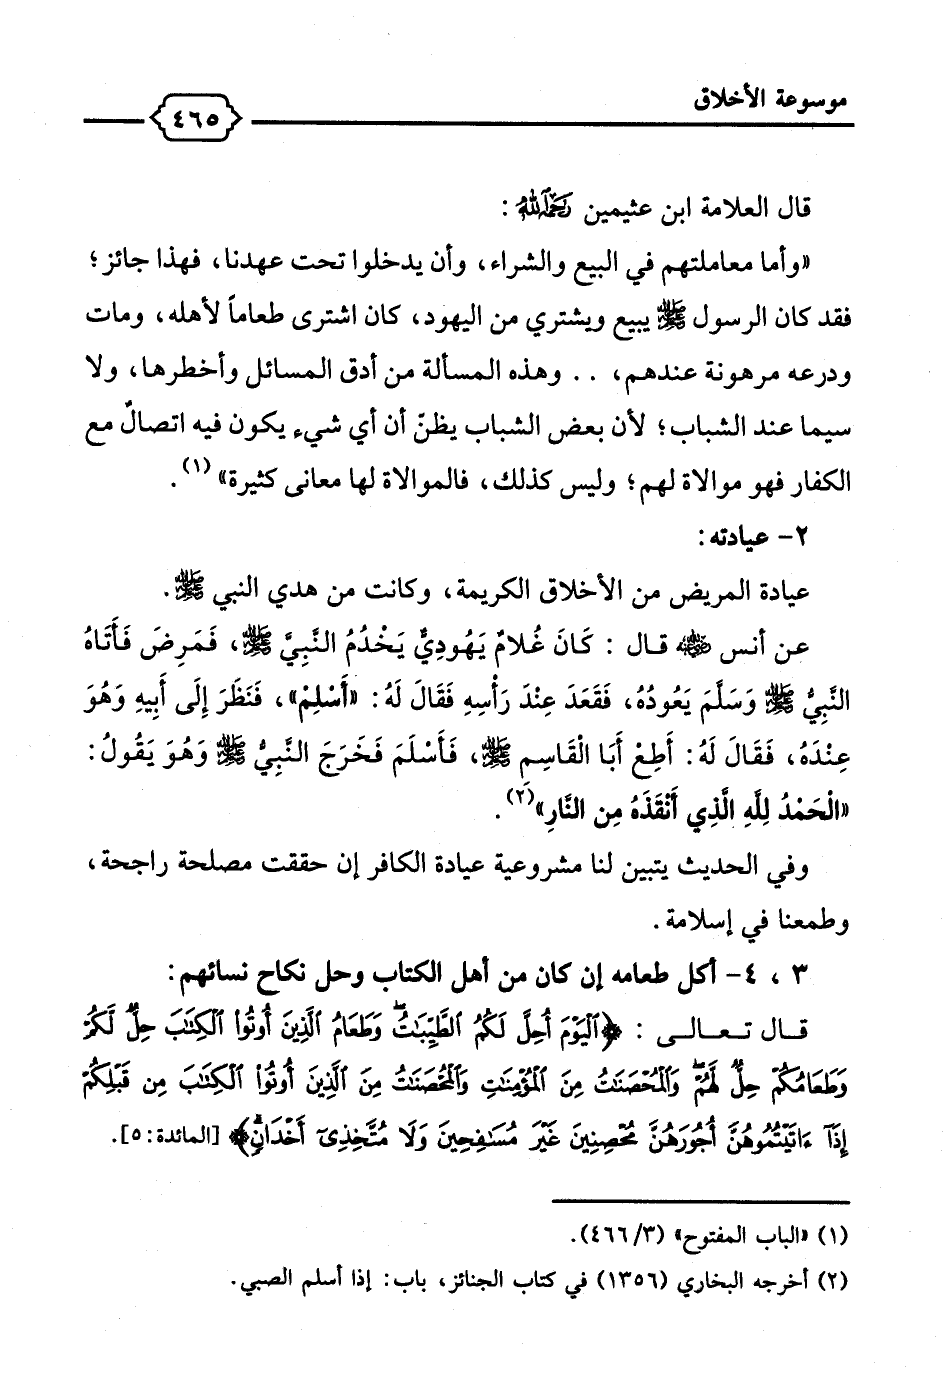 موسوعة الأخلاق
٤٦٥
قال العلامة ابن عثيمين رحمه الله :
«وأما معاملتهم في البيع والشراء، وأن يدخلوا تحت عهدنا، فهذا جائز؛
فقد كان الرسول ﷺ يبيع ويشتري من اليهود، كان اشترى طعاماً لأهله، ومات
ودرعه مرهونة عندهم، .. وهذه المسألة من أدق المسائل وأخطرها، ولا
سيما عند الشباب؛ لأن بعض الشباب يظنّ أن أي شيء يكون فيه اتصالٌ مع
الكفار فهو موالاة لهم؛ وليس كذلك، فالموالاة لها معانى كثيرة» (١).
٢- عيادته:
عيادة المريض من الأخلاق الكريمة، وكانت من هدي النبي ﷺ.
عن أنس رضي الله عنه قال : كَانَ غُلَامٌ يَهُودِيٌّ يَخْدُمُ النَّبِيَّ ﷺ، فَمَرِضَ فَأَتَاهُ
النَّبِيُّ ﷺ وَسَلَّمَ يَعُودُهُ، فَقَعَدَ عِنْدَ رَأْسِهِ فَقَالَ لَهُ: «أَسْلِمْ»، فَنَظَرَ إِلَى أَبِيهِ وَهُوَ
عِنْدَهُ، فَقَالَ لَهُ: أَطِعْ أَبَا الْقَاسِمِ ﷺ، فَأَسْلَمَ فَخَرَجَ النَّبِيُّ ﷺ وَهُوَ يَقُولُ:
«الْحَمْدُ لِلَّهِ الَّذِي أَنْقَذَهُ مِن النَّارِ»(٢).
وفي الحديث يتبين لنا مشروعية عيادة الكافر إن حققت مصلحة راجحة،
وطمعنا في إسلامة.
٣ ، ٤- أكل طعامه إن كان من أهل الكتاب وحل نكاح نسائهم:
قال تعالى : ﴿ٱلْيَوْمَ أُحِلَّ لَكُمُ ٱلطَّيِّبَٰتُ ۖ وَطَعَامُ ٱلَّذِينَ أُوتُوا۟ ٱلْكِتَٰبَ حِلٌّ لَّكُمْ
وَطَعَامُكُمْ حِلٌّ لَّهُمْ ۖ وَٱلْمُحْصَنَٰتُ مِنَ ٱلْمُؤْمِنَٰتِ وَٱلْمُحْصَنَٰتُ مِنَ ٱلَّذِينَ أُوتُوا۟ ٱلْكِتَٰبَ مِن قَبْلِكُمْ
إِذَآ ءَاتَيْتُمُوهُنَّ أُجُورَهُنَّ مُحْصِنِينَ غَيْرَ مُسَٰفِحِينَ وَلَا مُتَّخِذِىٓ أَخْدَانٍ ۗ﴾ [المائدة: ٥].
(١) «الباب المفتوح» (٣/ ٤٦٦).
(٢) أخرجه البخاري (١٣٥٦) في كتاب الجنائز، باب: إذا أسلم الصبي.